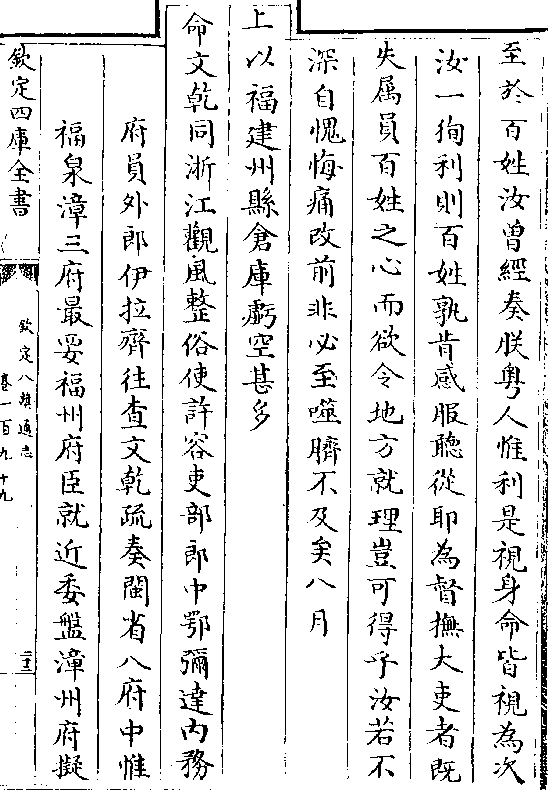 至於百姓汝曾經奏朕粤人惟利是視身命皆視為次
汝一徇利則百姓孰肯感服聽從耶為督撫大吏者既
失屬員百姓之心而欲令地方就理豈可得乎汝若不
深自愧悔痛改前非必至噬臍不及矣八月
上以福建州縣倉庫虧空甚多
命文乾同浙江觀風整俗使許容吏部郎中鄂彌達内務
府員外郎伊拉齊往查文乾疏奏閩省八府中惟
福泉漳三府最要福州府臣就近委盤漳州府擬
欽定四庫全書
欽定八旗通志
卷一百九十九
二十三